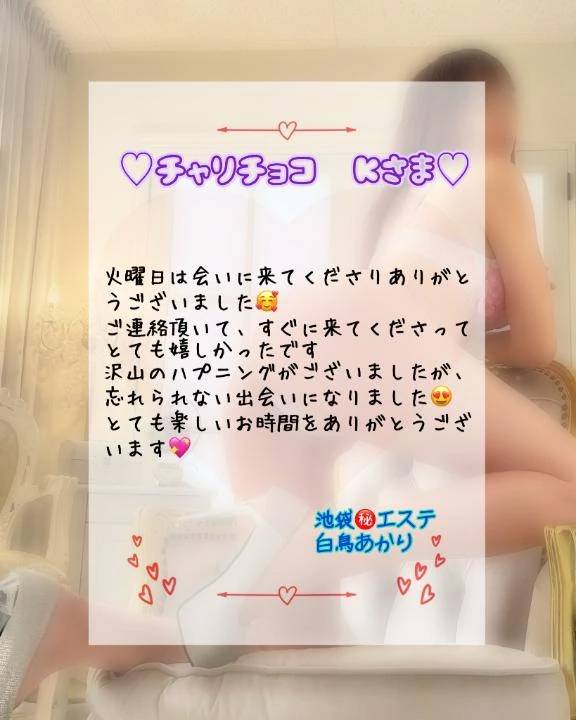 ♡チャリチョコ　Kさま♡
火曜日は会いに来てくださりありがと
うございました🥰
ご連絡頂いて、すぐに来てくださって
とても嬉しかったです
沢山のハプニングがございましたが、
忘れられない出会いになりました😍
とても楽しいお時間をありがとうござ
います💖
池袋㊙️エステ
白鳥あかり